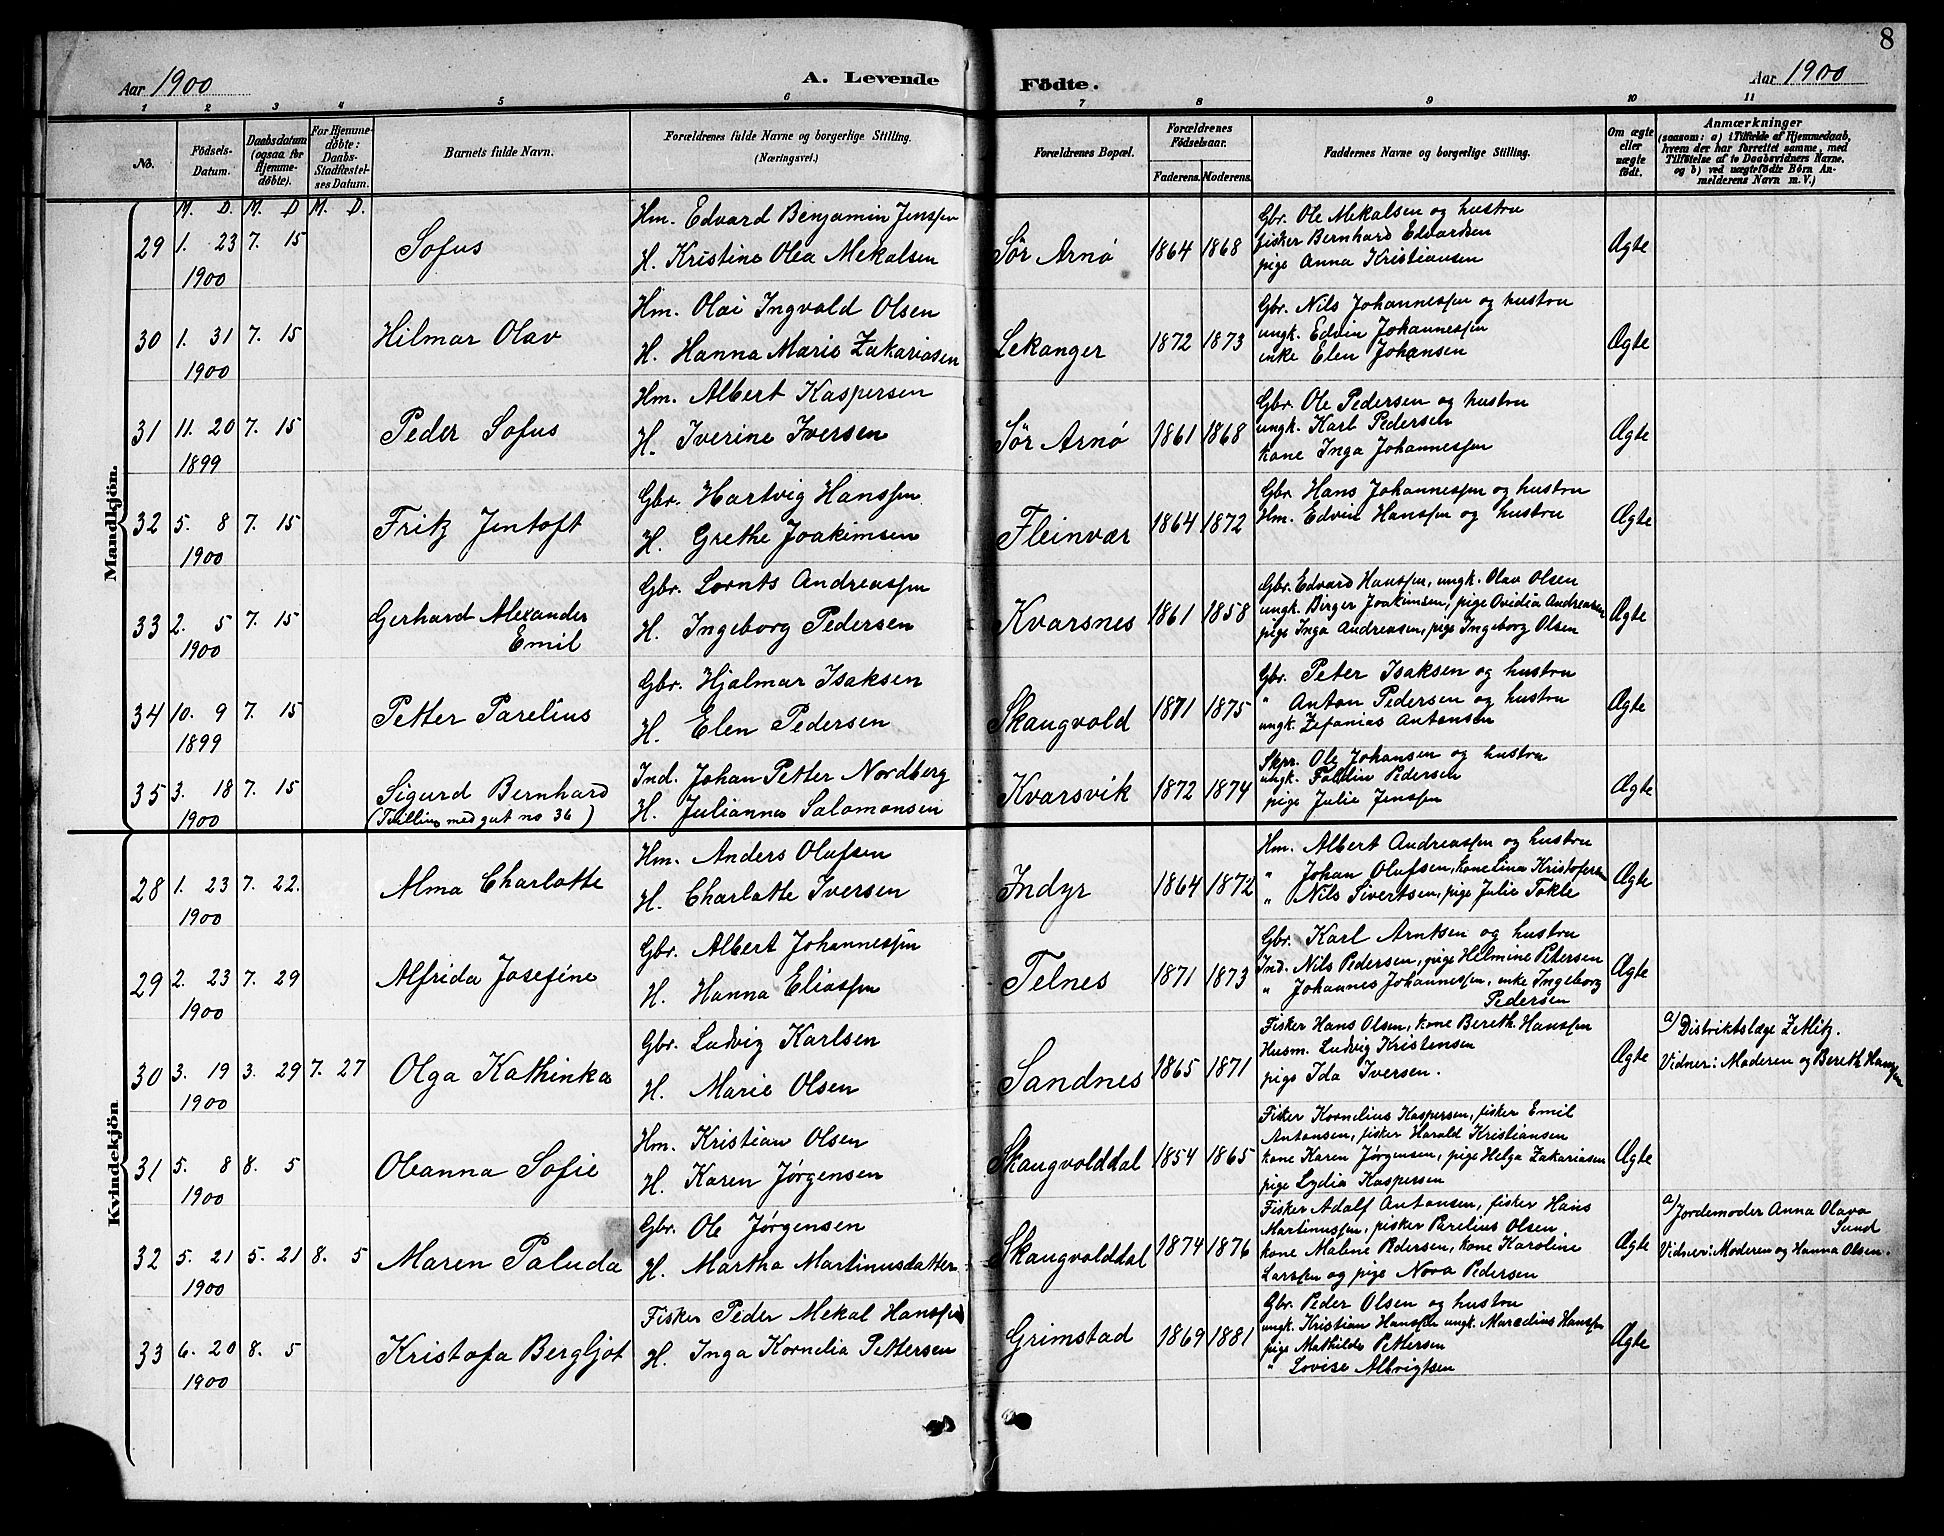 8
Aar 1900
A. Levende
Födte.
Aar 1900
1 2 3 4 5 6 7 8 9 10 11
No.
Födsels-Datum.
Daabsdatum (ogsaa for Hjemme-döbte).
For Hjemme-döbte: Daabs-Stadfæstelses Datum.
Barnets fulde Navn.
Forældrenes fulde Navne og borgerlige Stilling. (Næringsvei.)
Forældrenes Bopæl.
Forældrenes Födselsaar.
Faderens. Moderens.
Faddernes Navne og borgerlige Stilling.
Om ægte eller uægte födt.
Anmærkninger
(saasom: a) i Tilfælde af Hjemmedaab, hvem der har forrettet samme, med Tilföielse af to Daabsvidners Navne, og b) ved uægtefödte Börn Anmelderens Navn m. V.)
M. D. M. D. M. D.
Mandkjön.
29 1. 23 7. 15 Sofus
1900
Hm. Edvard Benjamin Jenssen
H. Kristine Olea Mekalsen
Sör Arnø 1864 1868
Gbr. Ole Mekalsen og hustru
fisker Bernhard Edvardsen
pige Anna Kristiansen
Ægte
30 1. 31 7. 15 Hilmar Olav
1900
Hm. Olai Ingvald Olsen
H. Hanna Marie Zakariasen
Lekanger 1872 1873
Gbr. Nils Johannessen og hustru
ungk. Edvin Johannessen
enke Elen Johansen
Ægte
31 11. 20 7. 15 Peder Sofus
1899
Hm. Albert Kaspersen
H. Iverine Iversen
Sör Arnø 1861 1868
Gbr. Ole Pedersen og hustru
ungk. Karl Pedersen
kone Inga Johannessen
Ægte
32 5. 8 7. 15 Fritz Jentoft
1900
Gbr. Hartvig Hanssen
H. Grethe Joakimsen
Fleinvær 1864 1872
Gbr. Hans Johannessen og hustru
Hm. Edvin Hanssen og hustru
Ægte
33 2. 5 7. 15 Gerhard Alexander
Emil
1900
Gbr. Lornts Andreassen
H. Ingeborg Pedersen
Kvarsnes 1861 1858
Gbr. Edvard Hanssen, ungk. Olav Olsen
ungk. Birger Joakimsen, pige Ovidia Andreasen
pige Inga Andreasen, pige Ingeborg Olsen
Ægte
34 10. 9 7. 15 Petter Parelius
1899
Gbr. Hjalmar Isaksen
H. Elen Pedersen
Skaugvold 1871 1875
Gbr. Peter Isaksen og hustru
" Anton Pedersen og hustru
ungk. Zefanias Antonsen
Ægte
35 3. 18 7. 15 Sigurd Bernhard
1900 (Tvilling med gut no 36)
Ind. Johan Petter Nordberg
H. Julianna Salomonsen
Kvarsvik 1872 1874
Skpr. Ole Johansen og hustru
ungk. Pedersen
pige Julie Jenssen
Ægte
Kvindekjön
28 1. 23 7. 22. Alma Charlotte
1900
Hm. Anders Olufsen
H. Charlotte Iversen
Indyr 1864 1872
Hm. Albert Andreassen og hustru
" Johan Olufsen, kone Lina Kristofersen
" Nils Sivertsen, pige Julie Tokle
Ægte
29 2. 23 7. 29 Alfrida Josefine
1900
Gbr. Albert Johannessen
H. Hanna Eliassen
Telnes 1871 1873
Gbr. Karl Arntsen og hustru
Ind. Nils Pedersen, pige Helmine Petersen
" Johannes Johannessen, enke Ingeborg
Pedersen
Ægte
30 3. 19 3. 29 7. 27 Olga Kathinka
1900
Gbr. Ludvig Karlsen
H. Marie Olsen
Sandnes 1865 1871
Fisker Hans Olsen, kone Bereth. Hanssen
Husm. Ludvig Kristensen
pige Ida Iversen.
Ægte
a/ Distriktslæge Zetlitz.
Vidner: Moderen og Bereth Hanssen
31 5. 8 8. 5 Oleanna Sofie
1900
Hm. Kristian Olsen
H. Karen Jørgensen
Skaugvolddal 1854 1865
Fisker Kornelius Kaspersen, fisker Emil
Antonsen, fisker Harald Kristiansen
kone Karen Jørgensen, pige Helga Zakariasen
pige Lydia Kaspersen
Ægte
32 5. 21 5. 21 8. 5 Maren Paluda
1900
Gbr. Ole Jørgensen
H. Martha Martinusdatter
Skaugvolddal 1874 1876
Fisker Adolf Antonsen, fisker Hans
Martinussen, fisker Parelius Olsen
kone Malene Pedersen, kone Karoline
Larssen og pige Nora Pedersen
Ægte
a/ Jordemoder Anna Olava
Sund
Vidner: Moderen og Hanna Olsen.
33 6. 20 8. 5 Kristofa Bergljot
1900
Fisker Peder Mekal Hanssen
H. Inga Kornelia Pettersen
Grimstad 1869 1881
Gbr. Peder Olsen og hustru
ungk. Kristian Hanssen ungk. Marcelius Hanssen
pige Mathilde Pettersen
" Lovise Albrigtsen
Ægte